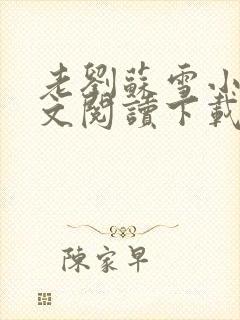 老劉蘇雪小
文閱讀下載
陳家早